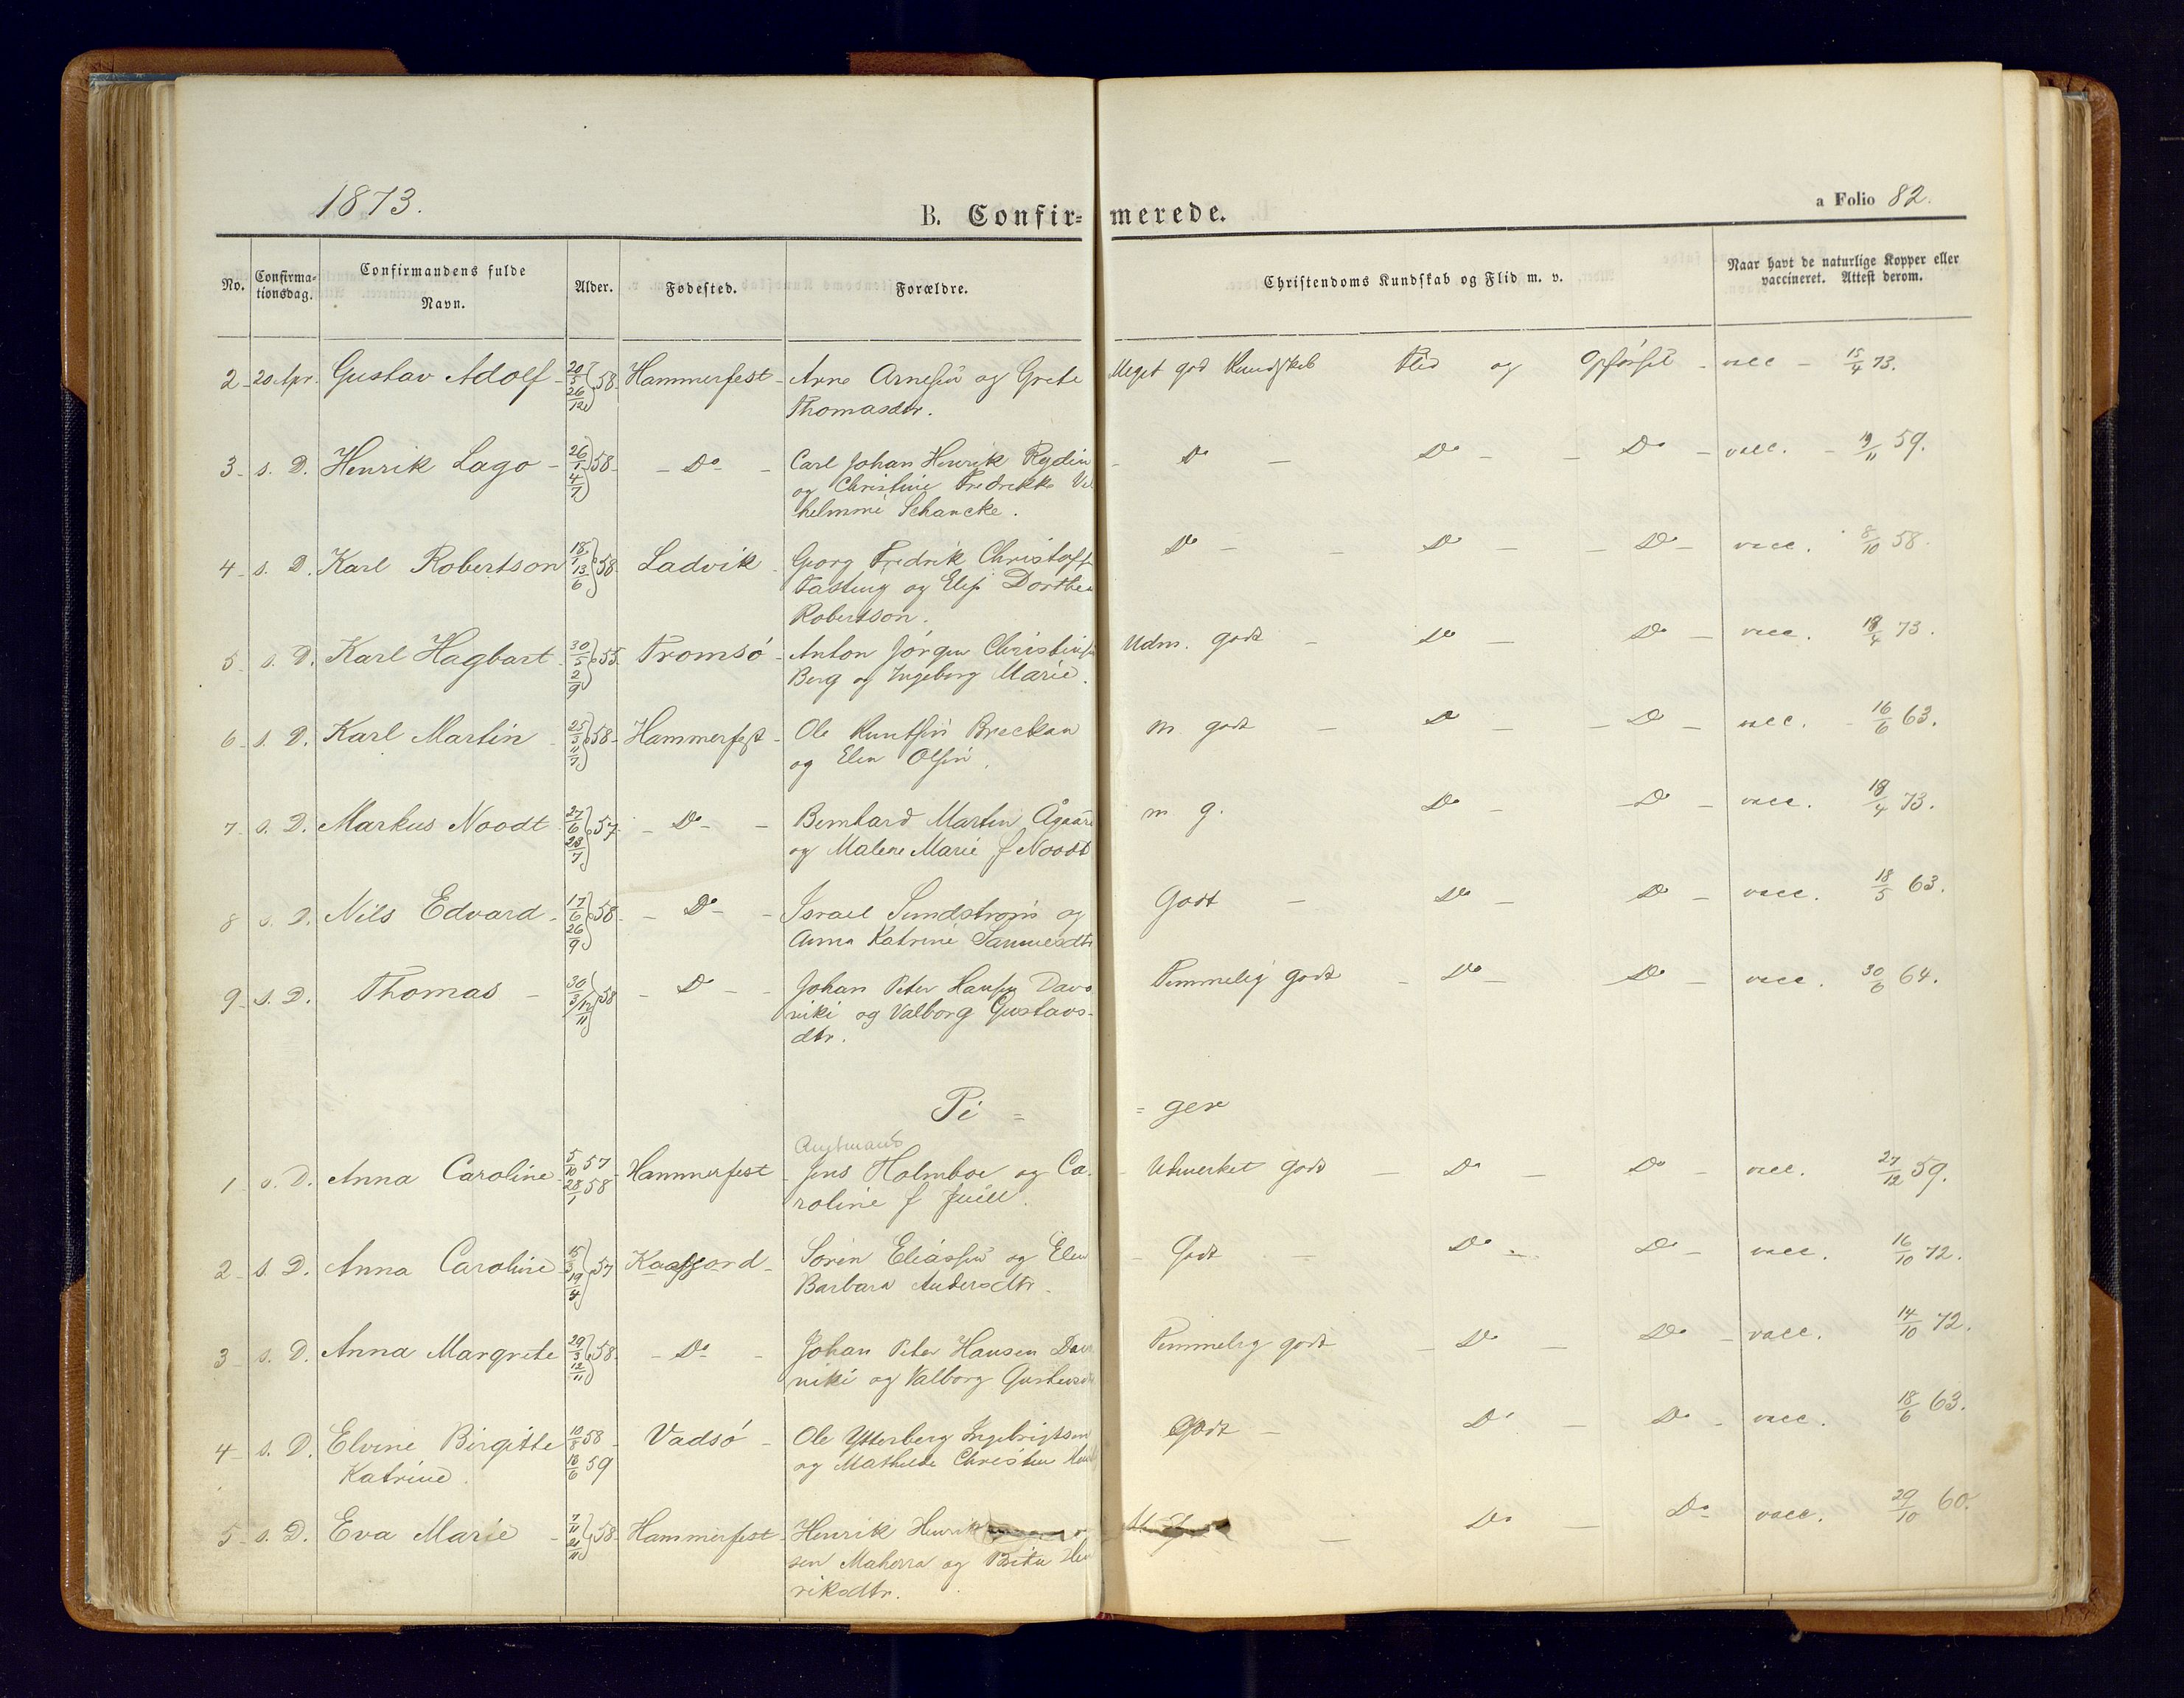 1873.
B. Confir= merede.
a Folio 82.
No. Confirma-tionsdag. Confirmandens fulde Navn. Alder. Fødested. Forældre. Christendoms Kundskab og Flid m. v. Naar havt de naturlige Kopper eller vaccineret. Attest derom.
2 - 20 Apr. Gustav Adolf - 20/5 26/12 58 - Hammerfest - Arne Arnesen og Grete Meget god Kundskab Flid og Opførsel - vacc - 15/4 73.
Thomasdtr.
3 - s. D. Henrik Lago - 26/1 4/7 58 - Do - Carl Johan Henrik Rydin - Do - Do - Do - vacc. - 19/11 59.
og Christine Fredrikke Vil
helmine Schancke.
4 - s. D. Karl Robertson 18/1 13/6 58 Ladvik - Georg Fredrik Christoff Do - Do - Do - vacc. 8/10 58.
Fasting og Dorthea
Robertson.
5 - s. D. Karl Hagbart - 30/5 2/9 55 Tromsö - Anton Jörgen Udm. godt - Do - Do - vacc. 18/4 73.
Berg og Ingeborg Marie.
6 - s. D. Karl Martin 25/3 11/7 58 - Hammerfest - Ole Kuntsen Breckan m. godt - Do - Do - vacc. - 16/6 63.
og Elen Olsen.
7 - s. D. Markus Noodt 27/6 28/7 57 - Do - Bernhard Martin m g. Do - Do - vacc. 18/4 73.
og Malene Marie f Noodt
8 s. D. Nils Edvard - 17/6 26/9 58 - Do - Israel Sundstrom og Godt - Do - Do - vacc. 18/5 63.
Anna Katrine
9 - s. D. Thomas - 30/3 12/11 58 - Do - Johan Peter Hansen Davo Temmelig godt - Do - Do - vacc. 30/6 64.
niki og Valborg Gustavs-
dtr.
Pi = = ger
Amtmand
1 - s. D. Anna Caroline 5/10 57 28/1 58 - Hammerfest - Jens Holmboe og Ca- - Udmerket godt - Do - Do - vacc. 27/12 59.
roline f Juell.
2 - s. D. Anna Caroline 15/3 19/4 57 Kaafjord - Sören Eliassen og Elen - Godt - Do - Do - vacc. 16/10 72.
Barbara Andersdtr.
3 - s. D. Anna Margrete 29/3 12/11 58 - Do - Johan Peter Hansen Dav Temmelig godt - Do - Do - vacc. 14/10 72.
niki og Valborg
4 - s. D. Elvine Birgitte 10/8 58 - Vadsö - Ole Ytterberg Ingebrigtsen Godt - Do - Do - vacc. 18/6 63.
Katrine. 18/6 59 og Mathilde
5 - s. D. Eva Marie - 7/11 21/11 58 - Hammerfest - Henrik Henrik - Do - Do vacc. 29/10 60.
sen og Hen
riksdtr.